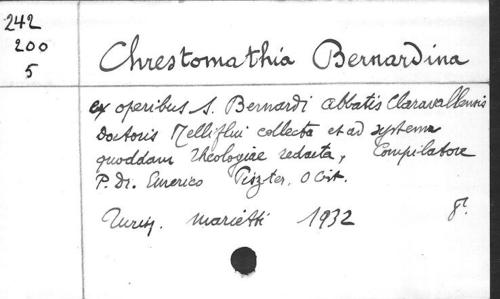 242
200
5
Chrestomathia Bernardina
ex operibus S. Bernardi abbatis Claravallensis
Doctoris Melliflui collecta et ad systema
quoddam theologiae redacta, Compilatore
P. Dr. Emerico Piszter, O Cit.
Turin. Marietti 1932 8°.